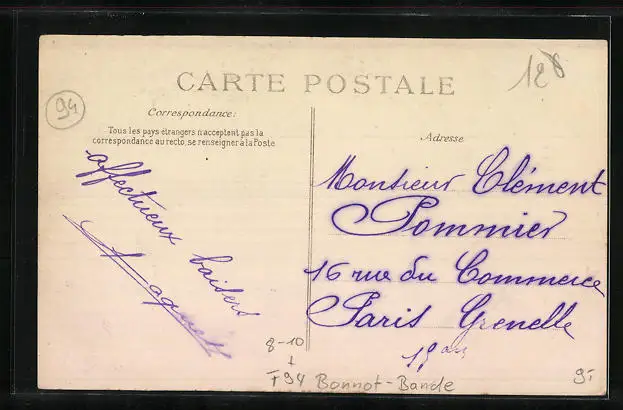 CARTE POSTALE
128
94
Correspondance:
Tous les pays étrangers n'acceptent pas la
correspondance au recto, se renseigner à la Poste
Adresse
affectueux baisers
Monsieur Clément
Pommier
16 rue du Commerce
Paris Grenelle
8-10
F94 Bonnot-Bande
9.-